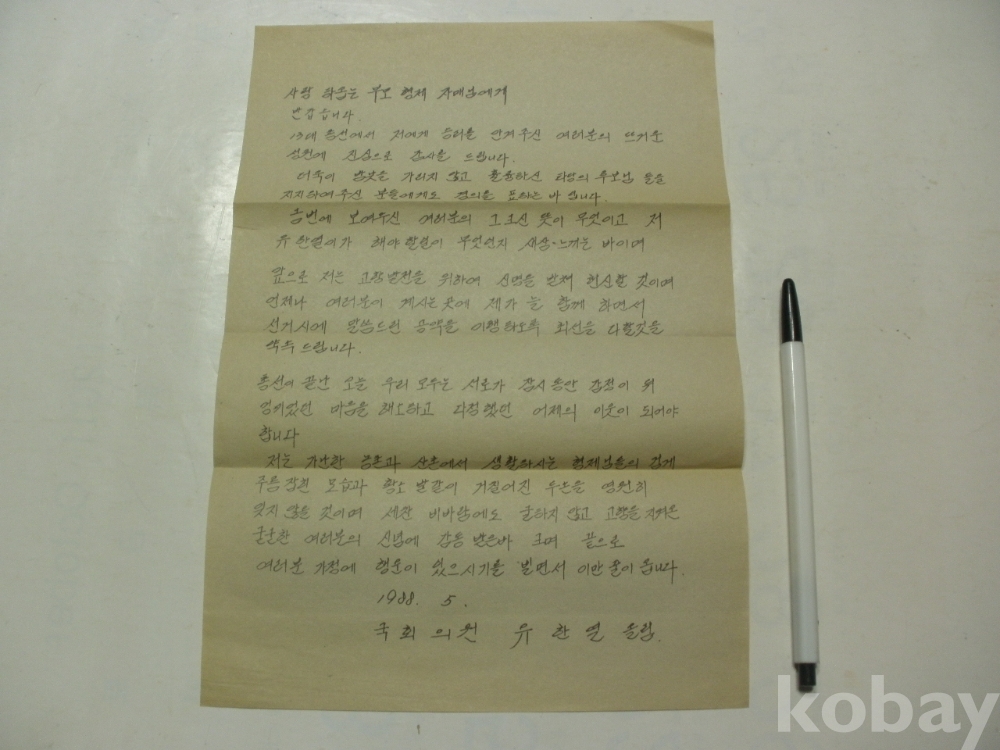 사랑 하옵는 부모 형제 자매님에게
반갑습니다.
13대 총선에서 저에게 승리를 안겨주신 여러분의 뜨거운
성원에 진심으로 감사를 드립니다.
더욱이 밤낮을 가리지 않고 활동하신 타당의 후보님 들을
지지하여주신 분들에게도 경의를 표하는 바 입니다.
금번에 보여주신 여러분의 그 크신 뜻이 무엇이고 저
유한열이가 해야 할일이 무엇인지 새삼 느끼는 바이며
앞으로 저는 고장발전을 위하여 신명을 받쳐 헌신할 것이며
언제나 여러분이 계시는 곳에 제가 늘 함께 하면서
선거시에 말씀드린 공약을 이행하도록 최선을 다할것을
약속 드립니다.
총선이 끝난 오늘 우리 모두는 서로가 잠시동안 감정이
엉키었던 마음을 해소하고 다정했던 어제의 이웃이 되어야
합니다
저는 가난한 농촌과 산촌에서 생활하시는 형제님들의 깊게
주름잡힌 모습과 황소 발같이 거칠어진 두손을 영원히
잊지 않을 것이며 세찬 비바람에도 굴하지 않고 고향을 지켜온
굳굳한 여러분의 신념에 감동 받은바 크며 끝으로
여러분 가정에 행운이 있으시기를 빌면서 이만 줄이 옵니다.
1988. 5.
국회의원 유한열 올림.
kobay